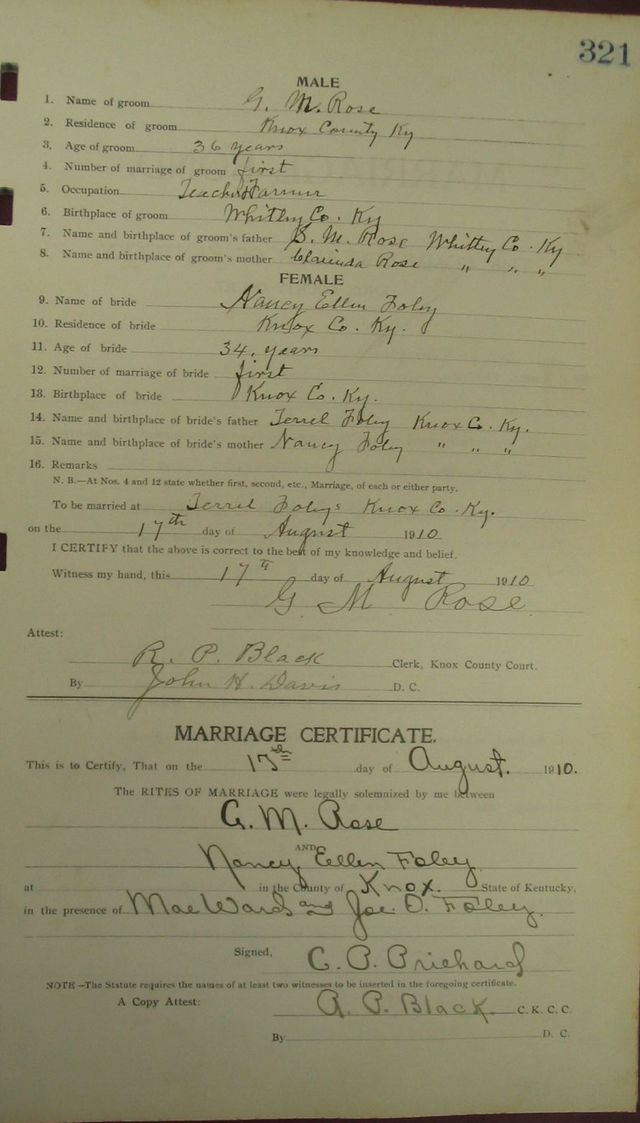 321
MALE
1. Name of groom G. M. Rose
2. Residence of groom Knox County Ky
3. Age of groom 36 years
4. Number of marriage of groom first
5. Occupation Teacher & Farmer
6. Birthplace of groom Whitley Co. Ky
7. Name and birthplace of groom's father S. M. Rose Whitley Co. Ky
8. Name and birthplace of groom's mother Clarinda Rose " " "
FEMALE
9. Name of bride Nancy Ellen Foley
10. Residence of bride Knox Co. Ky.
11. Age of bride 34, years
12. Number of marriage of bride first
13. Birthplace of bride Knox Co. Ky.
14. Name and birthplace of bride's father Terrel Foley Knox Co. Ky.
15. Name and birthplace of bride's mother Nancy Foley " " "
16. Remarks
N. B.—At Nos. 4 and 12 state whether first, second, etc., Marriage, of each or either party.
To be married at Terrel Foleys Knox Co. Ky.
on the 17th day of August 1910
I CERTIFY that the above is correct to the best of my knowledge and belief.
Witness my hand, this 17th day of August 1910
G M Rose
Attest:
R. P. Black Clerk, Knox County Court.
By John H. Davis D. C.
MARRIAGE CERTIFICATE.
This is to Certify, That on the 17th day of August. 1910.
The RITES OF MARRIAGE were legally solemnized by me between
G. M. Rose
AND
Nancy Ellen Foley
at in the County of Knox. State of Kentucky,
in the presence of Mae Ward and Joe. D. Foley.
Signed, C. P. Prichard
NOTE—The Statute requires the names of at least two witnesses to be inserted in the foregoing certificate.
A Copy Attest: R. P. Black. C. K. C. C.
By D. C.